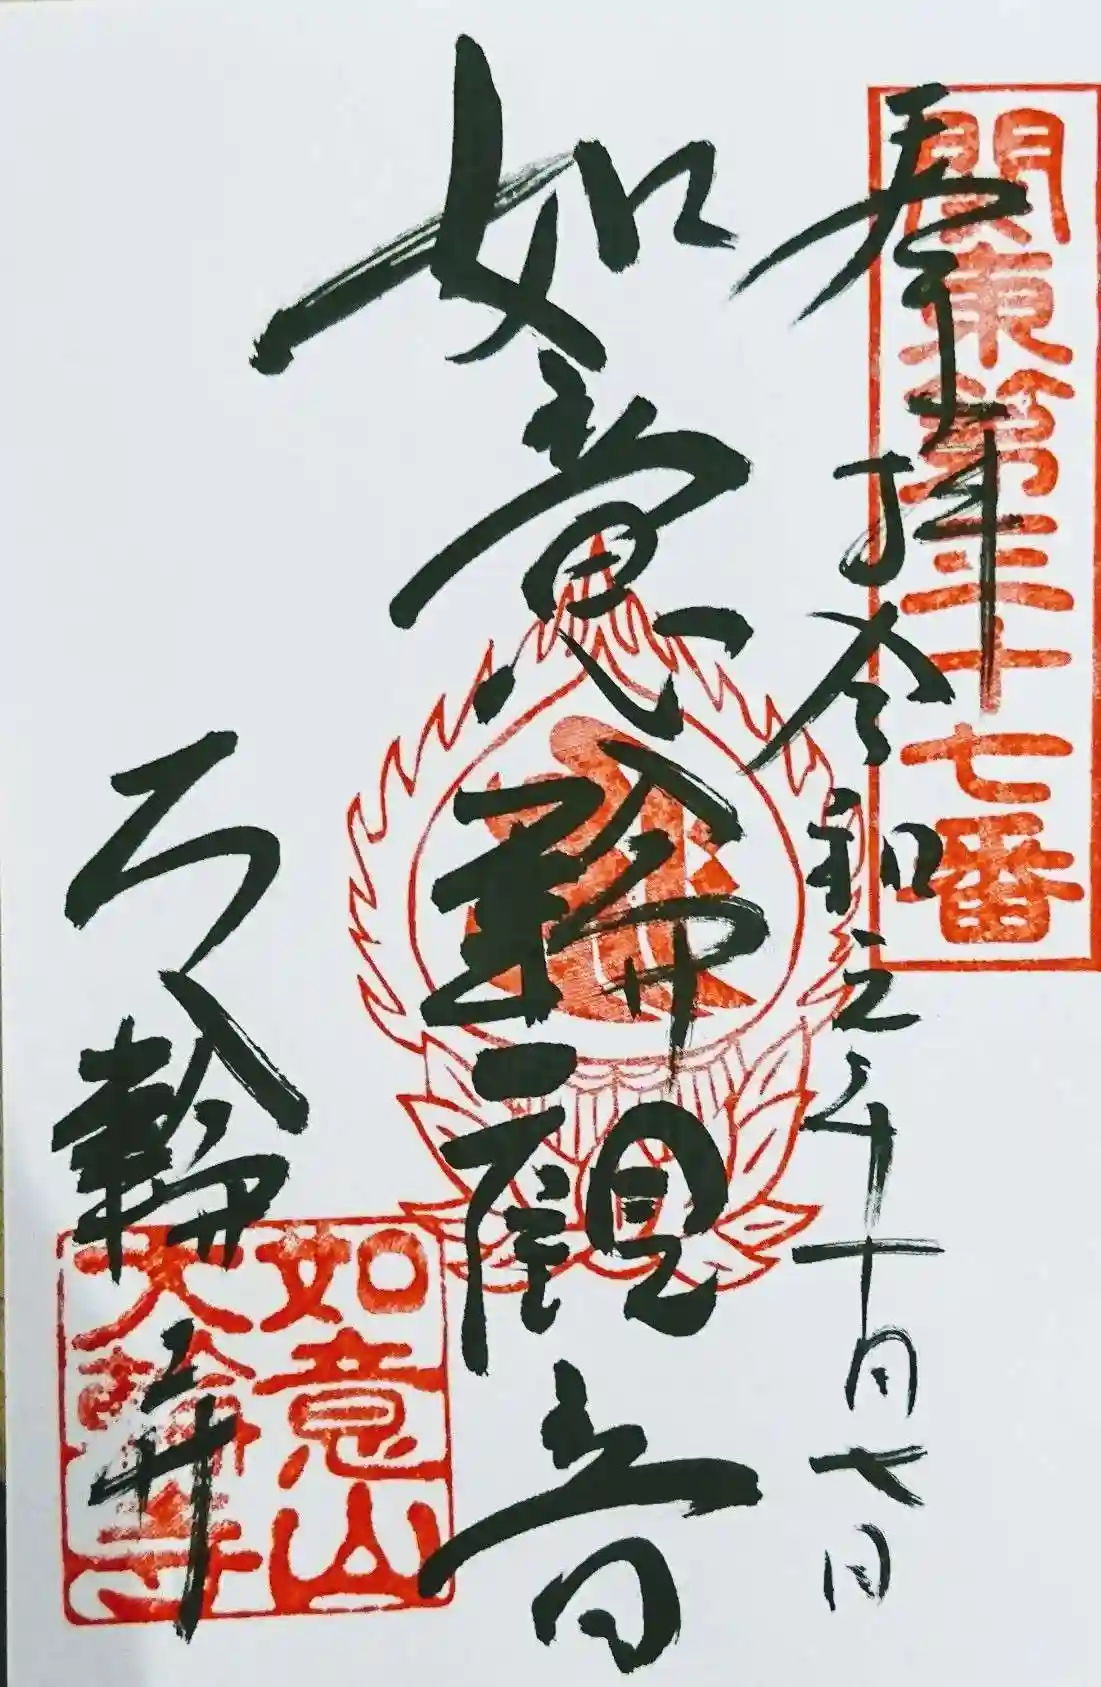 関東第三十七番
奉拝令和元年十月七日
如意輪観音
大輪寺
如意山
大輪寺